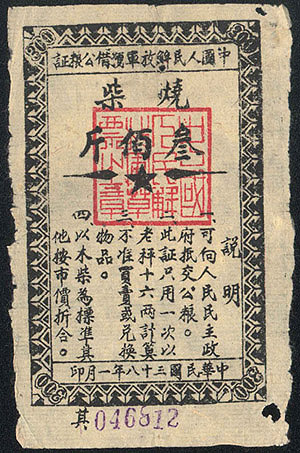 300 300
中國人民解放軍借公粮証
燒柴
叁佰斤
說明
一、可向人民民主政
府抵交公粮。
二、此証只用一次以
老秤十六兩計算
三、不准買賣或兌換
物品。
四、以木柴為標準其
他按市價折合。
中華民國三十八年一月印
300 300
其046812